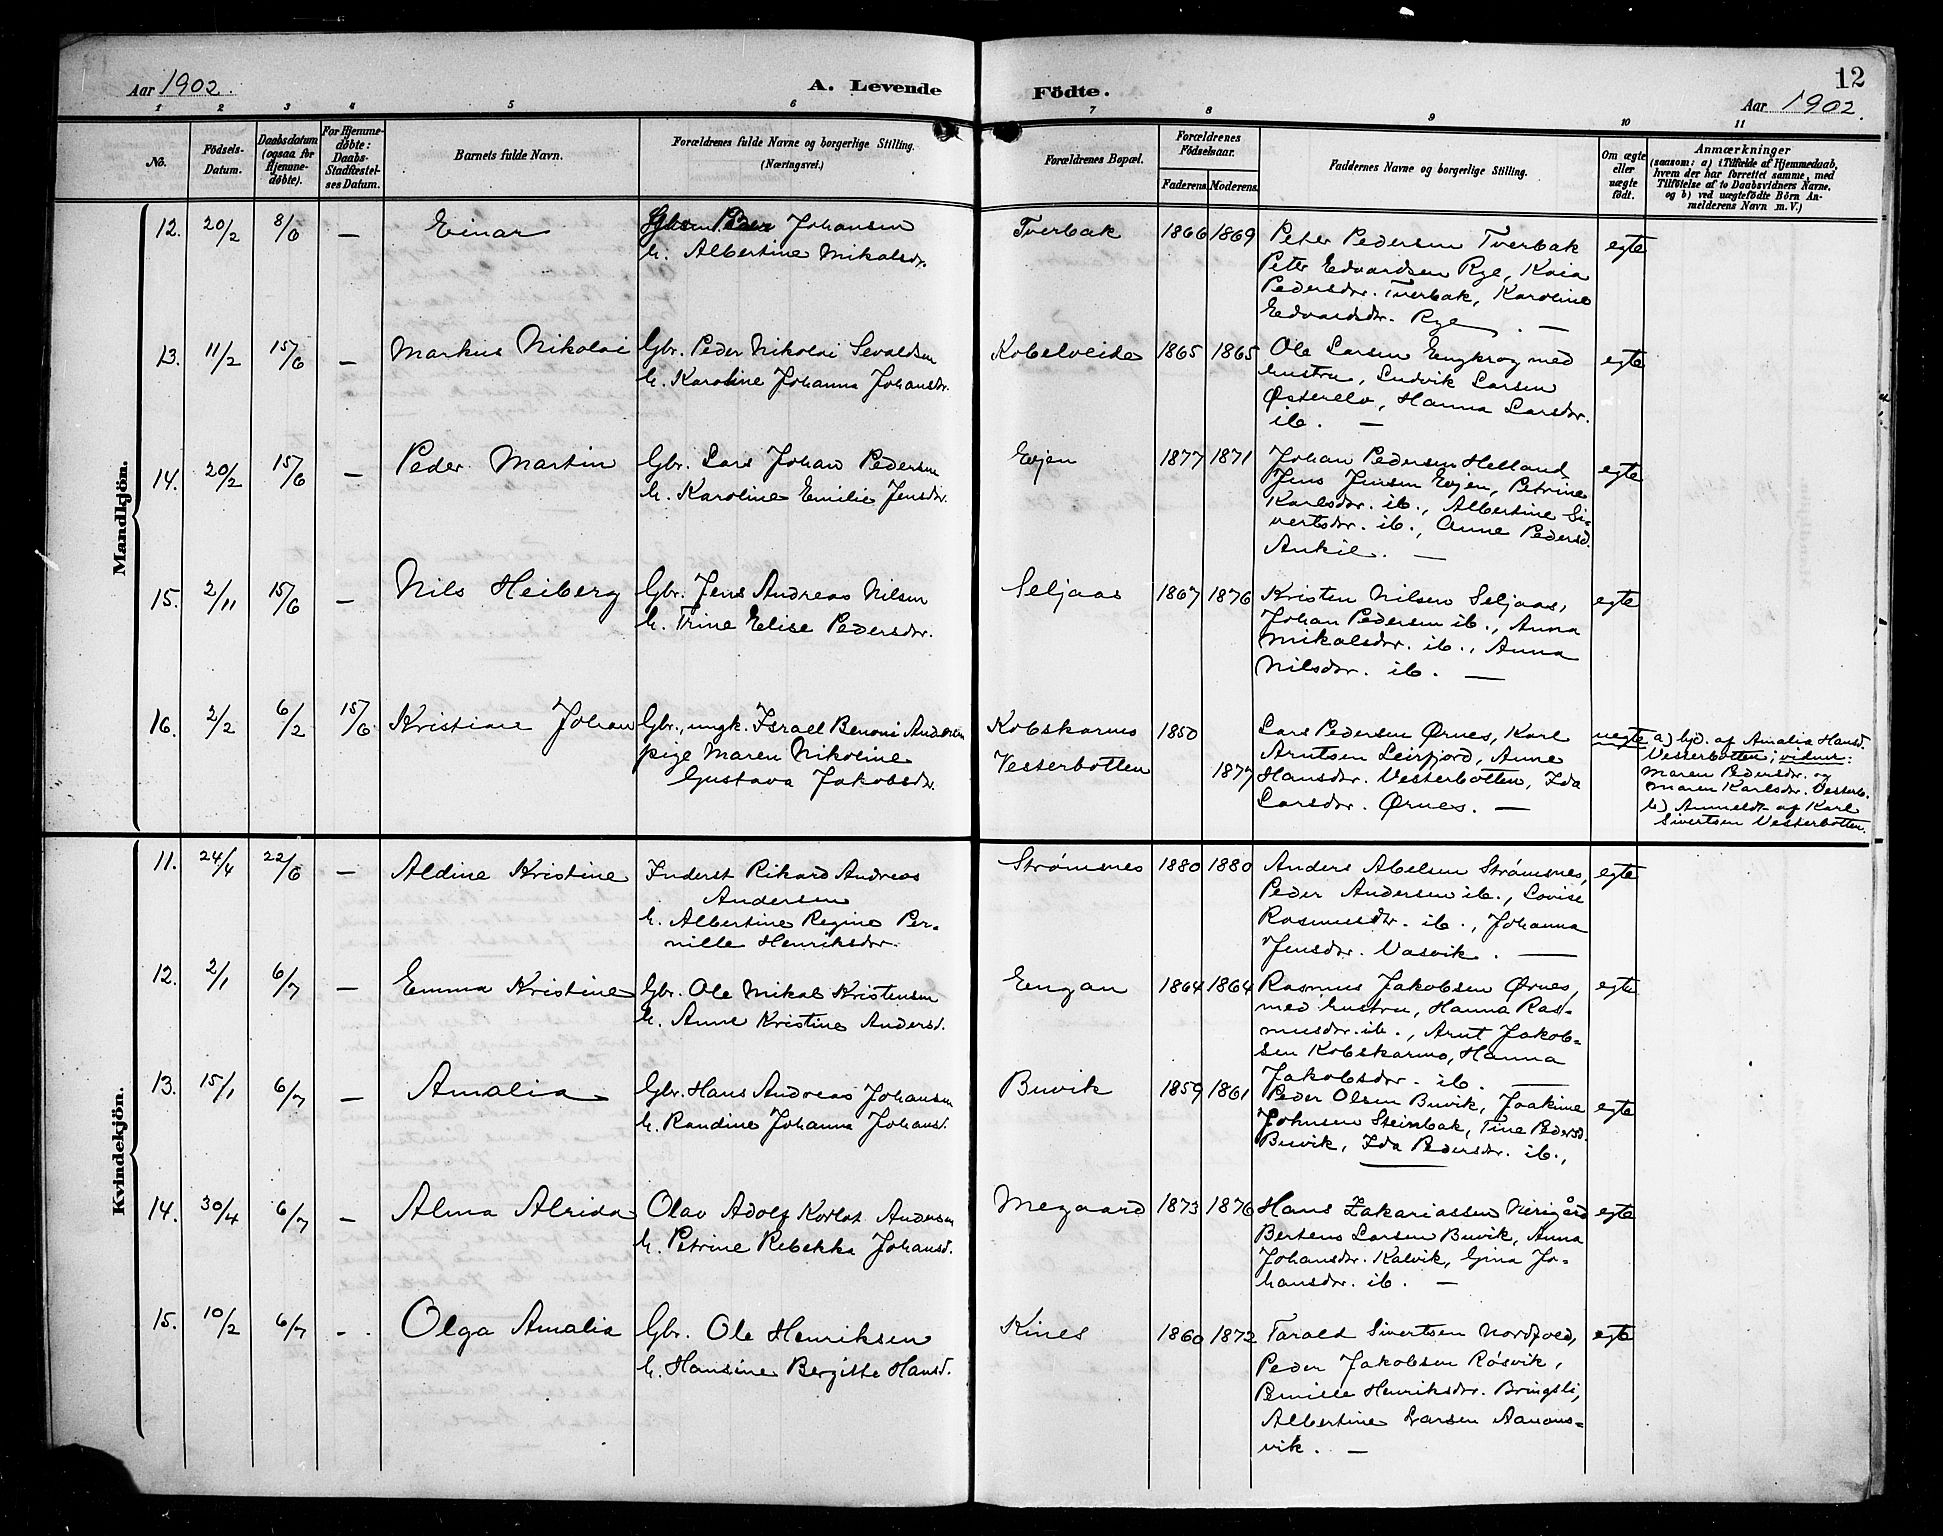 Aar 1902.
A. Levende
Födte.
12
Aar 1902.
1 2 3 4 5 6 7 8 9 10 11
No.
Födsels-
Datum.
Daabsdatum
(ogsaa for
Hjemme-
döbte).
For Hjemme-
döbte:
Daabs-
Stadfæstel-
ses Datum.
Barnets fulde Navn.
Forældrenes fulde Navne og borgerlige Stilling.
(Næringsvei.)
Forældrenes Bopæl.
Forældrenes
Födselsaar.
Faderens. Moderens.
Faddernes Navne og borgerlige Stilling.
Om ægte
eller
uægte
födt.
Anmærkninger
(saasom: a) i Tilfælde af Hjemmedaab,
hvem der har forrettet samme, med
Tilföielse af to Daabsvidners Navne,
og b) ved uægtefödte Börn An-
melderens Navn m.V.)
Mandkjön.
12. 20/2 8/6 — Einar
Johansen
h. Albertine Mikalsdr.
Tverbak 1866 1869
Peter Pedersen Tverbak
Peter Edvardsen Rye, Kaia
Pedersdr. Tverbak, Karoline
Edvardsdr. Rye. —
egte
13. 11/2 15/6 — Markus Nikolai
Gbr. Peder Nikolai Sevaldsen
h. Karoline Johanna Johansdr.
Kobelveide 1865 1865
Ole Larsen Engkrog med
hustru, Ludvik Larsen
Østerelv, Hanna Larsdr.
ib. —
egte
14. 20/2 15/6 — Peder Martin
Gbr. Lars Johan Pedersen
h. Karoline Emilie Jensdr.
Evjen 1877 1871
Johan Pedersen Helland,
Jens Jensen Evjen, Petrine
Karlsdr. ib., Albertine Si-
vertsdr. ib., Anne Pedersd.
Ankil. —
egte
15. 2/11 15/6 — Nils Heiberg
Gbr. Jens Andreas Nilsen
h. Trine Elise Pedersdr.
Seljaas 1867 1876
Kristen Nilsen Seljaas,
Johan Pedersen ib., Anna
Mikalsdr. ib., Anna
Nilsdr. ib. —
egte
16. 2/2 6/2 15/6 Kristian Johan
Gbr., ungk. Israel Benoni Andersen
pige Maren Nikoline
Gustava Jakobsdr.
Kobskarmo 1850
Vesterbotten 1877
Lars Pedersen Ørnes, Karl
Arntsen Leirfjord, Anne
Hansdr. Vesterbotten, Ida
Larsdr. Ørnes. —
uegte
a) hjd. af Amalia Hansd.
Vesterbotten; vidner:
Maren Pedersdr. og
Maren Karlsdr. Vesterb.
b) Anmeldt af Karl
Sivertsen Vesterbotten.
Kvindekjön.
11. 24/4 22/6 — Aldine Kristine
Inderst Rikard Andreas
Andersen
h. Albertine Regine Per-
nille Henriksdr.
Strømsnes 1880 1880
Anders Abelsen Strømsnes,
Peder Andersen ib., Lovise
Rasmusdr. ib., Johanna
Jensdr. Vasvik. —
egte
12. 2/1 6/7 — Emma Kristine
Gbr. Ole Mikal Kristensen
h. Anne Kristine Andersd.
Engan 1864 1864
Rasmus Jakobsen Ørnes,
med hustru, Hanna Ras-
musdr. ib., Arnt Jakob-
sen Kobskarmo, Hanna
Jakobsdr. ib. —
egte
13. 15/1 6/7 — Amalia
Gbr. Hans Andreas Johansen
h. Randine Johanna Johansd.
Buvik 1859 1861
Peder Olsen Buvik, Joakime
Johnsen Steinbak, Tine Pedersd.
Buvik, Ida Pedersdr. ib.,
egte
14. 30/4 6/7 — Alma Alrida
Olav Adolf Andersen
h. Petrine Rebekka Johansd.
Megaard 1873 1876
Hans Zakariassen
Bertens Larsen Buvik, Anna
Johansdr. Kalvik, Gina Jo-
hansdr. ib. —
egte
15. 10/2 6/7 — Olga Amalia
Gbr. Ole Henriksen
h. Hansine Bergitte Hansd.
Kines 1860 1872
Tarald Sivertsen Nordfold,
Peder Jakobsen Røsvik,
Pernille Henriksdr. Bringsli,
Albertine Larsen Aanons-
vik. —
egte